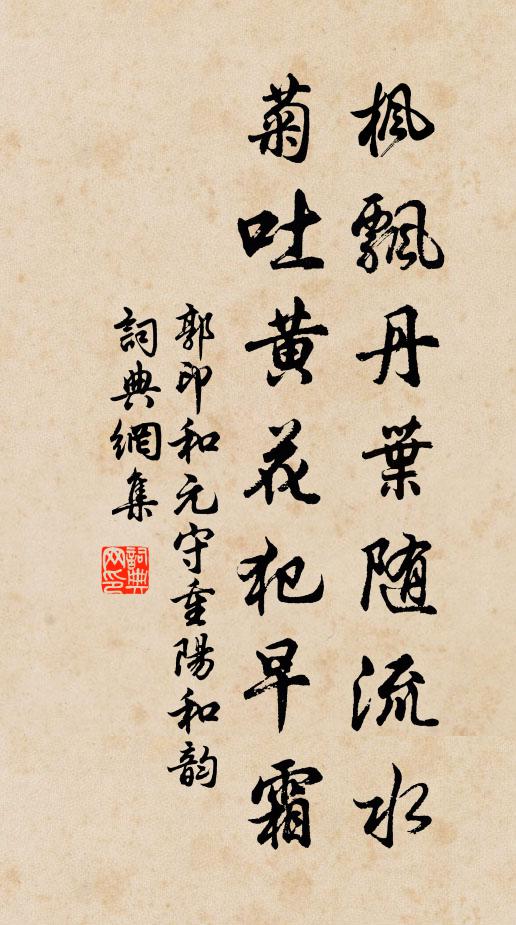 枫飄丹葉随流水
菊吐黄花犯早霜
郭印和元守重陽和韵
詞典網集
詞典网印